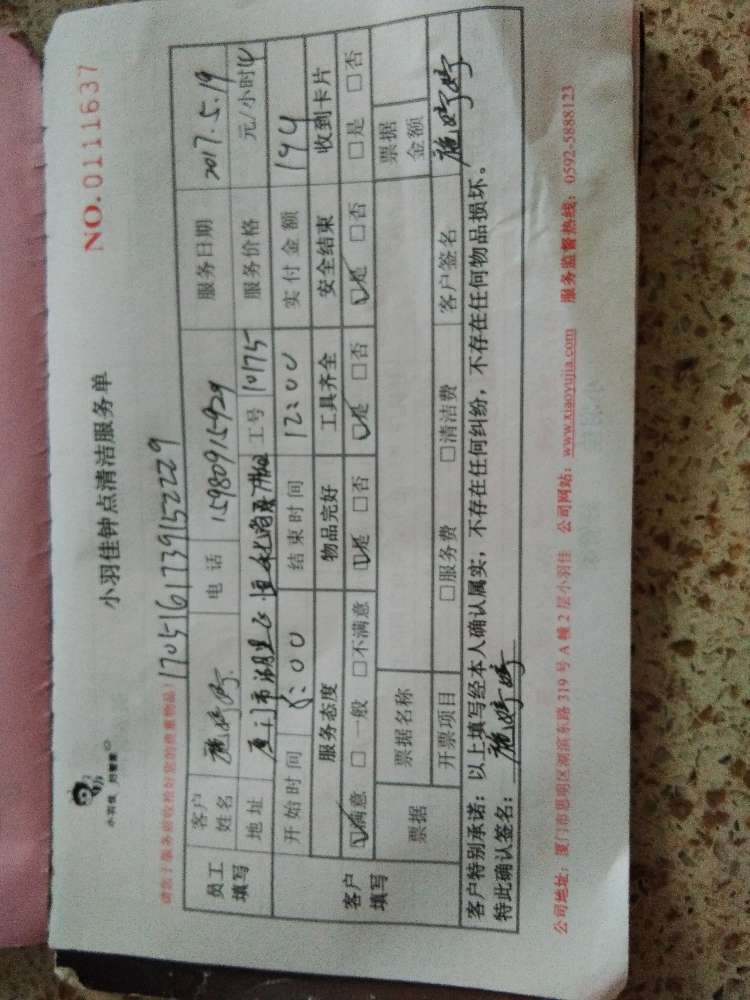 小羽佳 刘管家
小羽佳钟点清洁服务单
NO.0111637
请您于服务前收拾好您的贵重物品!
17051617739152229
员工填写 客户姓名 施婷婷 电话 15980915929 服务日期 2017.5.19
地址 厦门市湖里区 工号 10175 服务价格 元/小时
开始时间 :00 结束时间 12:00 实付金额 194
客户填写 服务态度 物品完好 工具齐全 安全结束 收到卡片
☑满意 □一般 □不满意 ☑是 □否 ☑是 □否 ☑是 □否 □是 □否
票据 票据名称 票据金额
开票项目 □服务费 □清洁费 客户签名 施婷婷
客户特别承诺:以上填写经本人确认属实,不存在任何纠纷,不存在任何物品损坏。
特此确认签名: 施婷婷
公司地址:厦门市思明区湖滨东路319号A幢2层小羽佳 公司网站:www.xiaoyujia.com 服务监督热线:0592-5888123